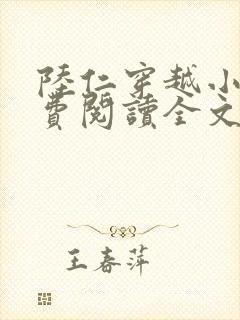 陸仁穿越小
費閱讀全文
王春萍